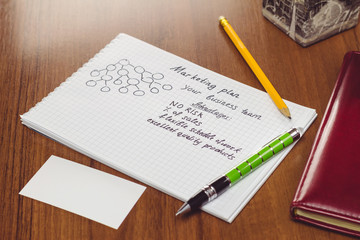 Marketing plan
your business team
Advantages:
NO RISK
% of sales
flexible schedule of work
excellent quality products